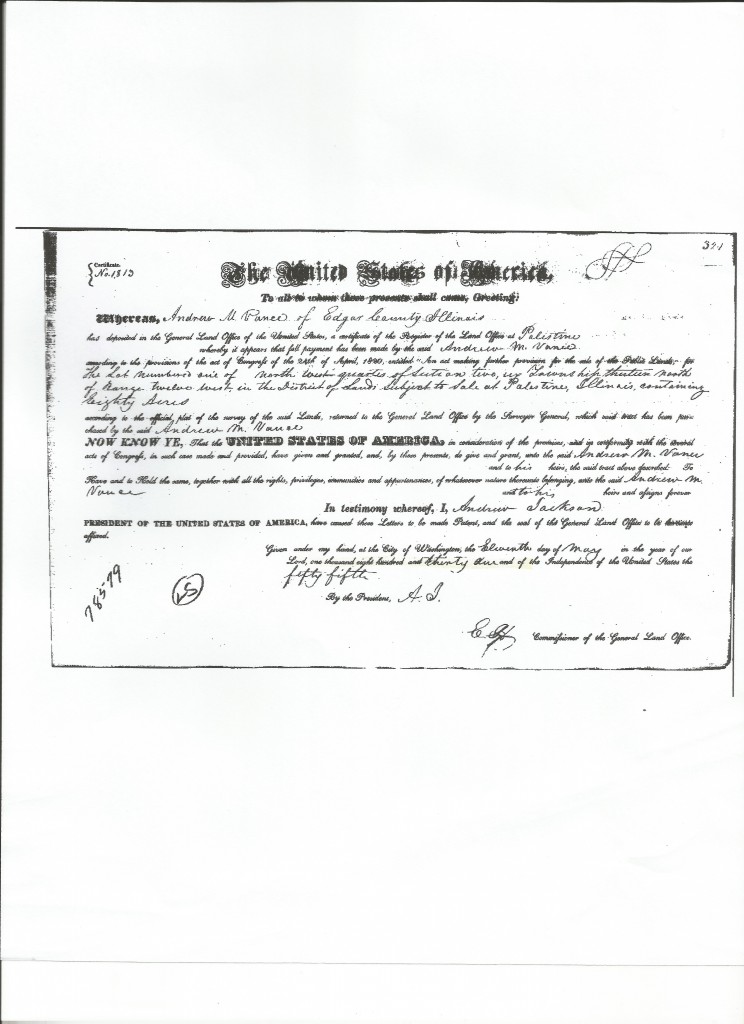 321
Certificate
No. 1313
The United States of America,
To all to whom these presents shall come, Greeting:
Whereas, Andrew M Vance of Edgar County Illinois
has deposited in the General Land Office of the United States, a certificate of the Register of the Land Office at Palestine
whereby it appears that full payment has been made by the said Andrew M. Vance
according to the provisions of the act of Congress of the 24th of April, 1820, entitled "An act making further provision for the sale of the Public Lands;" for
the Lot numbered one of North West quarter of Section two, in Township thirteen north
of Range twelve west, in the District of Lands Subject to Sale at Palestine, Illinois, containing
Eighty Acres
according to the official plat of the survey of the said Lands, returned to the General Land Office by the Surveyor General, which said tract has been pur-
chased by the said Andrew M. Vance
NOW KNOW YE, That the UNITED STATES OF AMERICA, in consideration of the premises, and in conformity with the several
acts of Congress, in such case made and provided, have given and granted, and, by these presents, do give and grant, unto the said Andrew M. Vance
and to his heirs, the said tract above described: To
Have and to Hold the same, together with all the rights, privileges, immunities and appurtenances, of whatsoever nature thereunto belonging, unto the said Andrew M.
Vance and to his heirs and assigns forever
In testimony whereof, I, Andrew Jackson
PRESIDENT OF THE UNITED STATES OF AMERICA, have caused these Letters to be made Patent, and the seal of the General Land Office to be hereunto
affixed.
Given under my hand, at the City of Washington, the Eleventh day of May in the year of our
Lord, one thousand eight hundred and thirty one and of the Independence of the United States the
fifty fifth
By the President, A. J.
78579
Commissioner of the General Land Office.